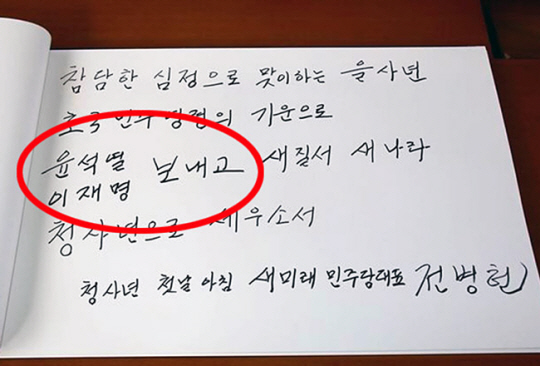 참담한 심정으로 맞이하는 을사년
호국민주영령의 기운으로
윤석열 보내고 새질서 새나라
이재명
청사년으로 세우소서
청사년 첫날 아침 새미래 민주당대표 전병헌